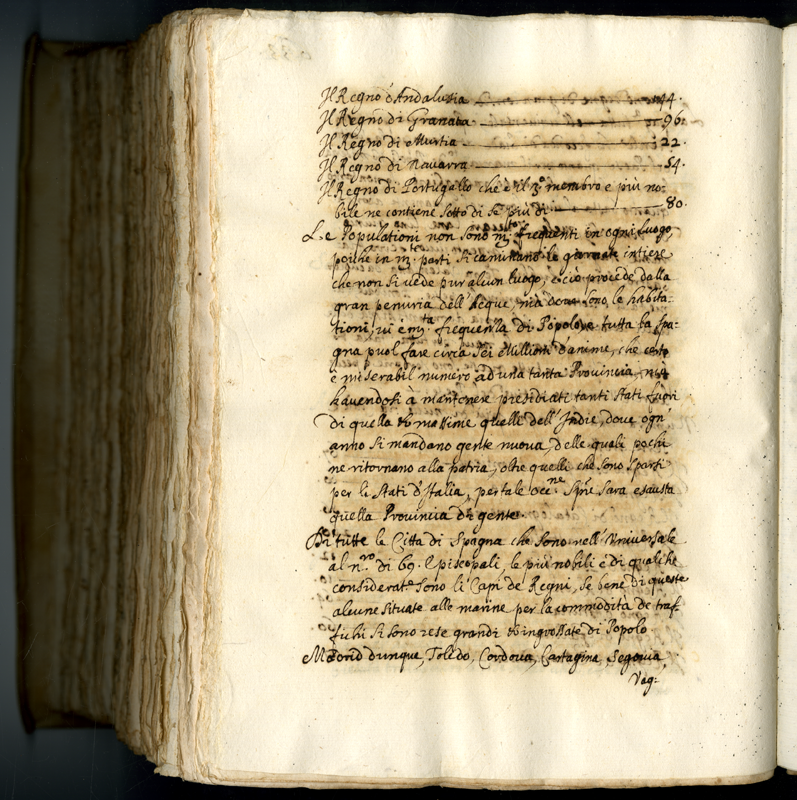 Il Regno d'Andaluzia 44.
Il Regno di Granata 96.
Il Regno di Murtia 22.
Il Regno di Navarra 54.
Il Regno di Portugallo che è il 3º membro e più no-
bile ne contiene sotto di se più di 80.
Le Populationi non sono m.to frequenti in ogni luogo,
poiche in m.te parti si caminano le giornate intiere
che non si vede pur alcun luogo, e ciò procede dalla
gran penuria dell'Acque, mà dove sono le habita-
tioni, vi è m.ta frequenza di Popolo, e tutta la Spa-
gna puol fare circa sei Millioni d'anime, che certo
è miserabil numero ad una tanta Provincia,
havendosi à mantenere presidiati tanti Stati fuori
di quella et massime quelli dell'Indie, dove ogn'
anno si mandano gente nuova, delle quali pochi
ne ritornano alla patria, oltre quelli che sono sparsi
per li Stati d'Italia, per tale occ.ne sempre sarà esausta
quella Provincia di gente.
Di tutte le Città di Spagna che sono nell'Universale
al n.ro di 69. Episcopali, le più nobili e di qualche
considerat.e sono li Capi de Regni, se bene di queste
alcune situate alle marine per la commodità de traf-
fichi si sono rese grandi et ingrossate di Popolo
Madrid dunque, Toledo, Cordova, Cartagina, Segovia,
Vag: